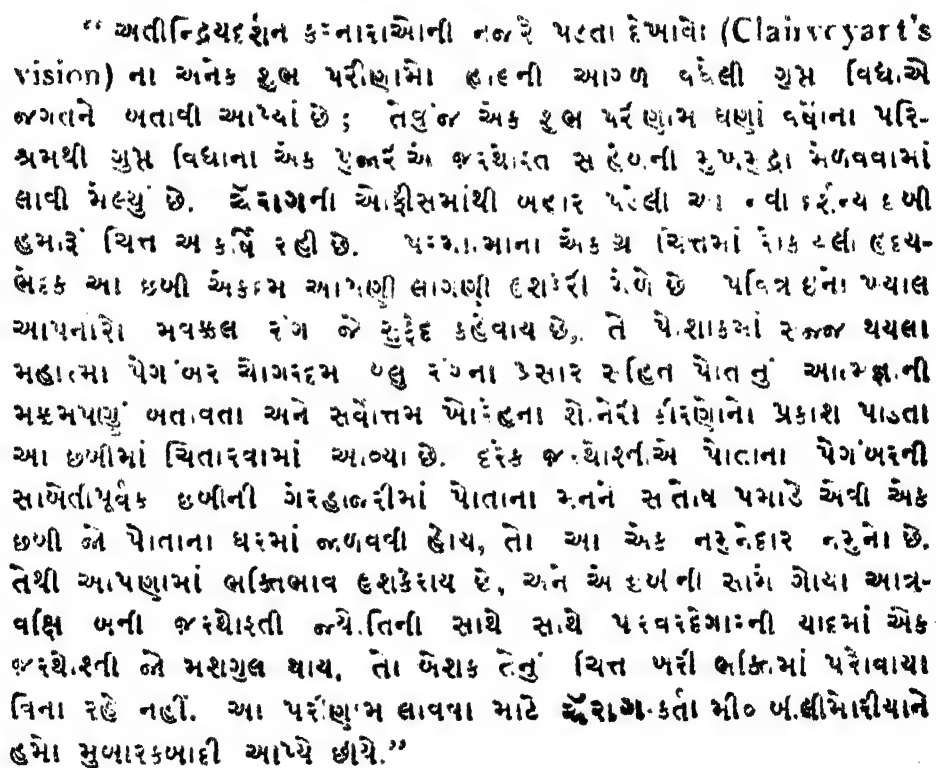 “ અતીન્દ્રિયદર્શન કરનારાઓની નજરે પડતા દેખાવો (Clairvoyant's
vision) ના અનેક શુભ પરીણામો હાલની આગળ વધેલી ગુપ્ત વિદ્યાએ
જગતને બતાવી આપ્યાં છે; તેવુંજ એક શુભ પરીણામ ઘણાં વર્ષોના પરિ-
શ્રમથી ગુપ્ત વિદ્યાના એક પુજારીએ જરથોસ્ત સાહેબની મુખમુદ્રા મેળવવામાં
લાવી મેલ્યું છે. ચૅરાગની ઓફીસમાંથી બહાર પડેલી આ નવી છબી
હમારૂં ચિત્ત આકર્ષિ રહી છે. પરમાત્માના એકાગ્ર ચિત્તમાં હૃદય-
ભેદક આ છબી એકદમ આપણી લાગણી ઉશકેરી મેળે છે પવિત્રાઇનો ખ્યાલ
આપનારો મવક્કલ રંગ જે સુફેદ કહેવાય છે, તે પોશાકમાં સજ્જ થયલા
મહાત્મા પેગંબર ચોગરદમ બ્લુ રંગના પ્રસાર સહિત પોતાનું આત્મજ્ઞાની
મક્કમપણું બતાવતા અને સર્વોત્તમ ખોરેહના શોનેરી કીરણોનો પ્રકાશ પાડતા
આ છબીમાં ચિતારવામાં આવ્યા છે. દરેક જરથોશ્તીએ પોતાના પેગંબરની
સાબેતીપૂર્વક છબીની ગેરહાજરીમાં પોતાના મનને સંતોષ પમાડે એવી એક
છબી જો પોતાના ઘરમાં જાળવવી હોય, તો આ એક નમુનેદાર નમુનો છે.
તેથી આપણામાં ભક્તિભાવ ઉશકેરાય છે, અને એ છબીની સામે ગોયા આત્ર-
વક્ષિ બની જરથોશ્તી જ્યોતિની સાથે સાથે પરવરદેગારની યાદમાં એક
જરથોશ્તી જો મશગુલ થાય, તો બેશક તેનું ચિત્ત ખરી ભક્તિમાં પરોવાયા
વિના રહે નહીં. આ પરીણામ લાવવા માટે ચૅરાગ-કર્તા મી૦ બીલીમોરીયાને
હમો મુબારકબાદી આપ્યે છીયે.”